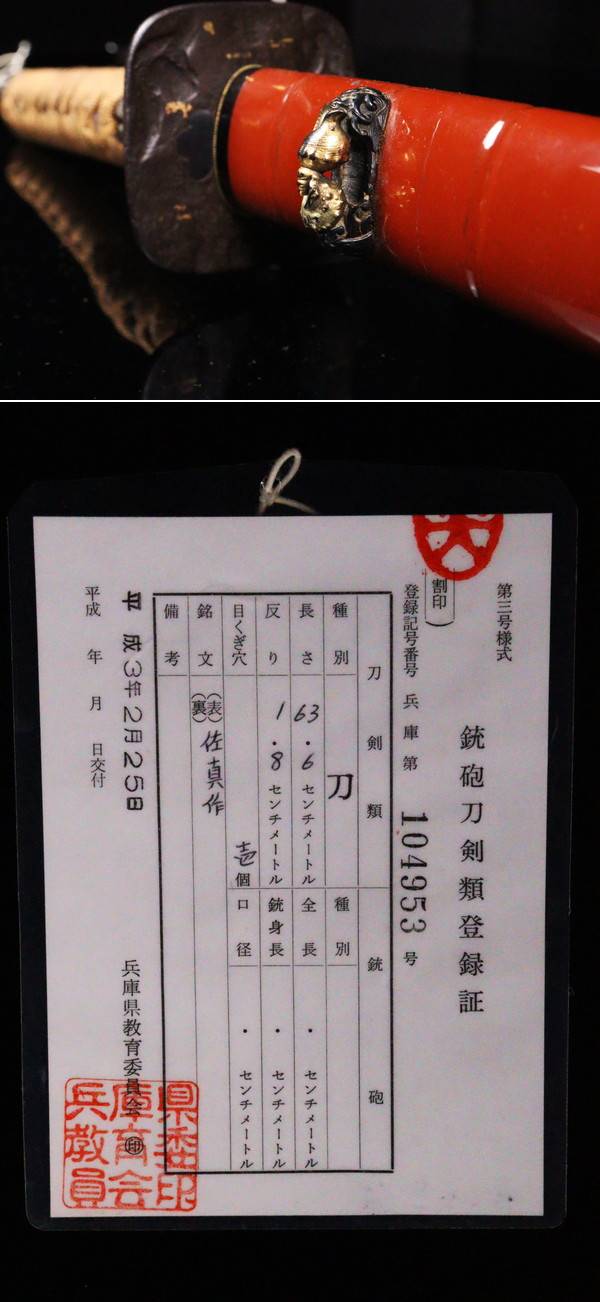 第三号様式
銃砲刀剣類登録証
割印
登録記号番号 兵庫 第 104953 号
刀剣類
銃砲
種別 刀
種別
長さ 63.6 センチメートル
全長 . センチメートル
反り 1.8 センチメートル
銃身長 . センチメートル
目くぎ穴 壱個
口径 . センチメートル
銘文 (表) 佐真作
(裏)
備考
平成3年2月25日
兵庫県教育委員会 印
平成 年 月 日交付
県委印
庫育会
兵教員